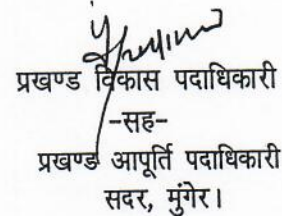 प्रखण्ड विकास पदाधिकारी
-सह-
प्रखण्ड आपूर्ति पदाधिकारी
सदर, मुंगेर।